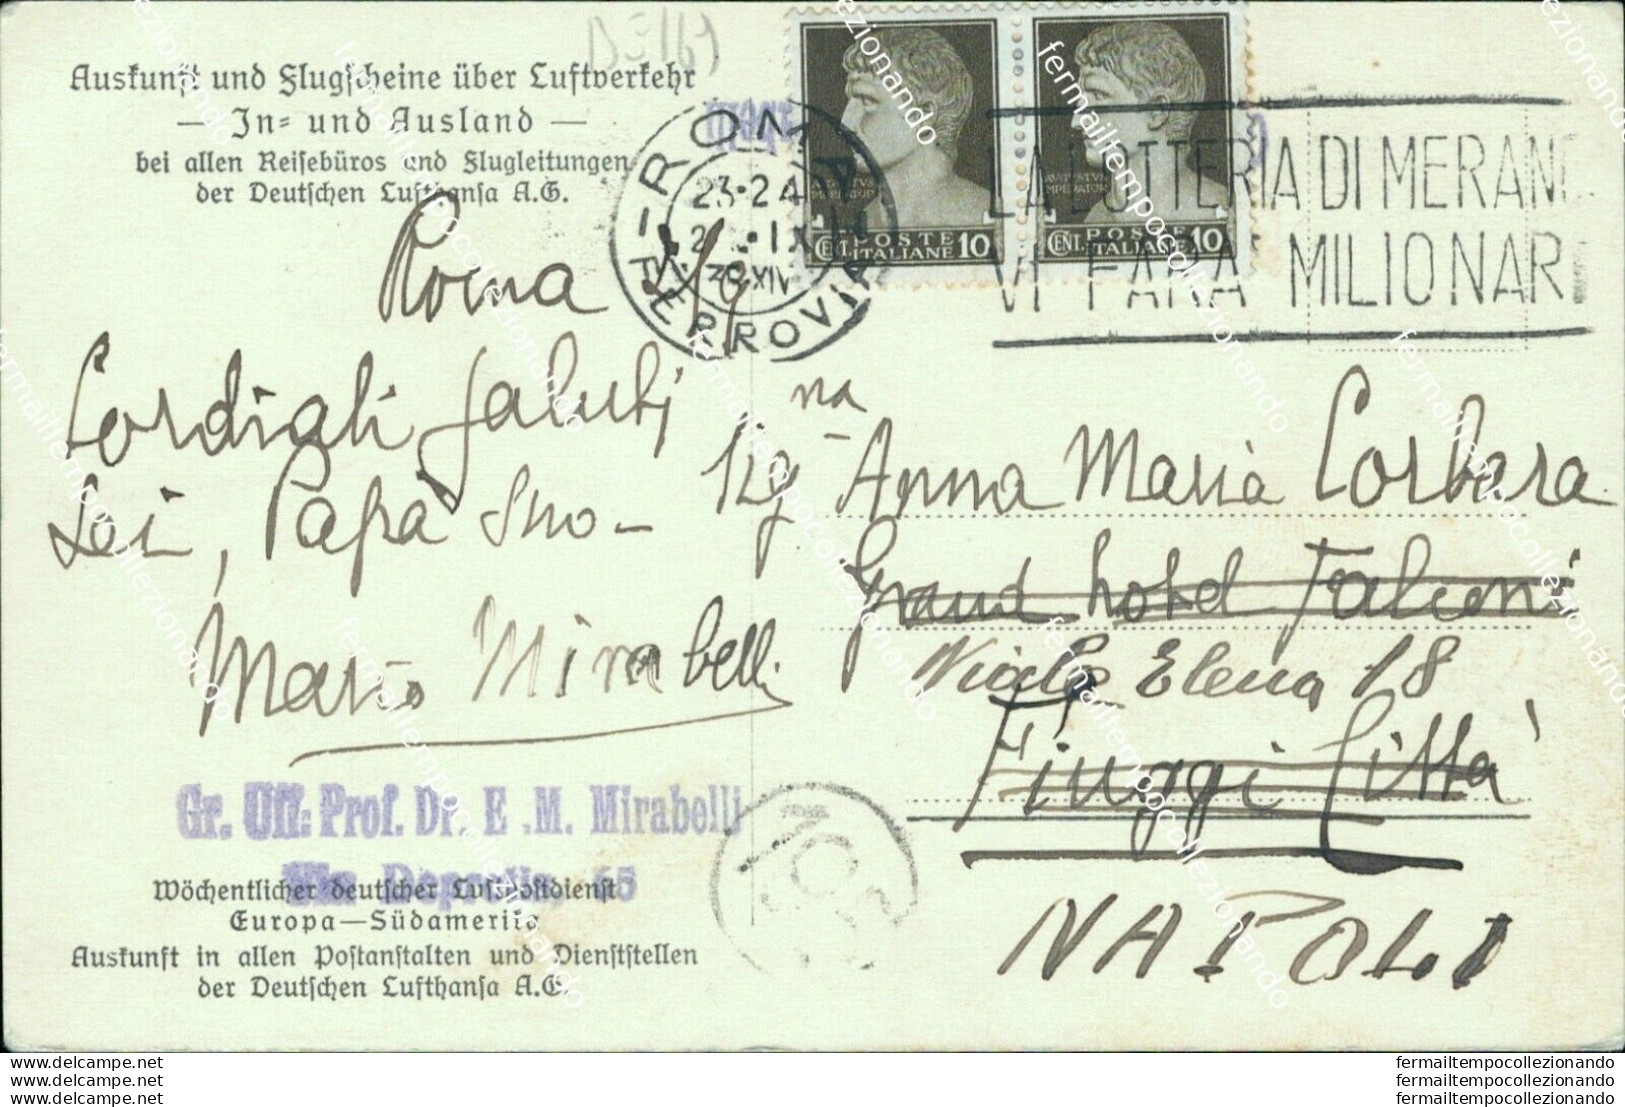 Auskunft und Flugscheine über Luftverkehr
— In= und Ausland —
bei allen Reisebüros und Flugleitungen
der Deutschen Lufthansa A.G.
ROMA FERROVIA
23-24
IX
XIV
AVGVSTVS IMPERATOR
CENT. POSTE ITALIANE 10
CENT. POSTE ITALIANE 10
LA LOTTERIA DI MERANO
VI FARA' MILIONARI
Roma
Cordiali saluti
Lei, Papà Suo—
Mario Mirabelli
Sig na Anna Maria Corbara
Grand hotel Falconi
Viale Elena 18
Fiuggi Città
NAPOLI
Gr. Uff. Prof. Dr. E .M. Mirabelli
Via Depretis 65
Wöchentlicher deutscher Luftpostdienst
Europa—Südamerika
Auskunft in allen Postanstalten und Dienststellen
der Deutschen Lufthansa A.G.
fermailtempocollezionando
fermailtempocollezionando
fermailtempocollezionando
www.delcampe.net
www.delcampe.net
www.delcampe.net